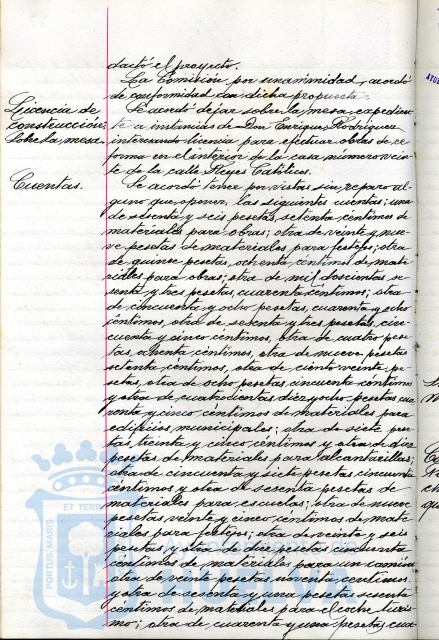 dactó el proyecto.
La Comisión por unanimidad, acordó
de conformidad con dicha propuesta.
Licencia de
construcción.
Sobre la mesa.
Se acordó dejar sobre la mesa, expedien-
te a instancias de Don Enrique Rodríguez
interesando licencia para efectuar obras de re
forma en el interior de la casa número vein
te de la calle Reyes Católicos.
Cuentas.
Se acordó tener por vistas sin reparo al
guno que oponer, las siguientes cuentas; una
de sesenta y seis pesetas, setenta céntimos de
materiales para obras; otra de veinte y nue-
ve pesetas de materiales para festejos; otra
de quince pesetas, ochenta céntimos de mate-
riales para obras; otra de mil doscientas se
senta y tres pesetas, cuarenta céntimos; otra
de cincuenta y ocho pesetas, cuarenta y ocho
céntimos, otra de sesenta y tres pesetas, cin
cuenta y cinco céntimos, otra de cuatro pese
tas, ochenta céntimos, otra de nueve pesetas
setenta céntimos, otra de ciento veinte pe-
setas, otra de ocho pesetas cincuenta céntimos
y otra de cuatrocientas diez y ocho pesetas cua
renta y cinco céntimos de materiales para
edificios municipales; otra de siete pese
tas, treinta y cinco céntimos y otra de diez
pesetas de materiales para alcantarillas;
otra de cincuenta y siete pesetas, cincuenta
céntimos y otra de sesenta pesetas de
materiales para escuelas; otra de nueve
pesetas, veinte y cinco céntimos de mate
riales para festejos; otra de veinte y seis
pesetas y otra de diez pesetas cincuenta
céntimos de materiales para un camión
otra de veinte pesetas noventa céntimos
y otra de sesenta y una pesetas sesenta
céntimos de materiales para el coche turis
mo; otra de cuarenta y una pesetas, cua
PORTUS MARIS
ET TERR
Ayuntamiento de